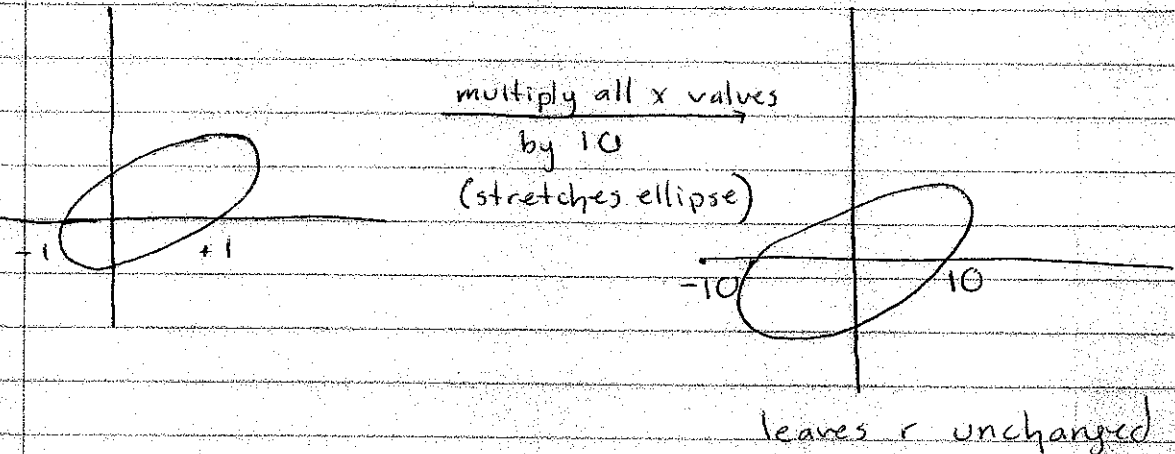 multiply all x values
by 10
(stretches ellipse)
-1
+1
-10
10
leaves r unchanged